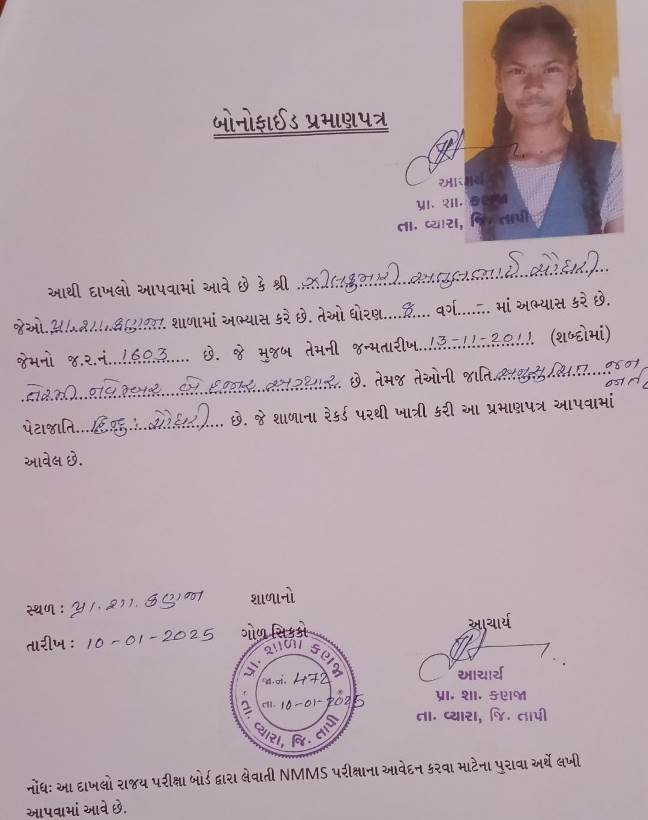 બોનોફાઈડ પ્રમાણપત્ર
આચાર્ય
પ્રા. શા. કણજા
તા. વ્યારા, જિ. તાપી
આથી દાખલો આપવામાં આવે છે કે શ્રી ઝીલકુમારી અતુલભાઈ ચૌધરી
જેઓ પ્રા.શા.કણજા શાળામાં અભ્યાસ કરે છે. તેઓ ધોરણ....૪.... વર્ગ....-... માં અભ્યાસ કરે છે.
જેમનો જ.ર.નં. 1603 .... છે. જે મુજબ તેમની જન્મતારીખ 13-11-2011 (શબ્દોમાં)
તેરમી નવેમ્બર બે હજાર અગ્યાર છે. તેમજ તેઓની જાતિ અનુસુચિત જન જાતિ
પેટાજાતિ હિન્દુ : ચૌધરી છે. જે શાળાના રેકર્ડ પરથી ખાત્રી કરી આ પ્રમાણપત્ર આપવામાં
આવેલ છે.
સ્થળ : પ્રા. શા. કણજા
શાળાનો
તારીખ : 10-01-2025
ગોળ સિક્કો
આચાર્ય
પ્રા. શાળા કણજા
જા.નં. 472
તા. 10-01-2025
તા. વ્યારા, જિ. તાપી
આચાર્ય
પ્રા. શા. કણજા
તા. વ્યારા, જિ. તાપી
નોંધ: આ દાખલો રાજય પરીક્ષા બોર્ડ દ્વારા લેવાતી NMMS પરીક્ષાના આવેદન કરવા માટેના પુરાવા અર્થે લખી
આપવામાં આવે છે.